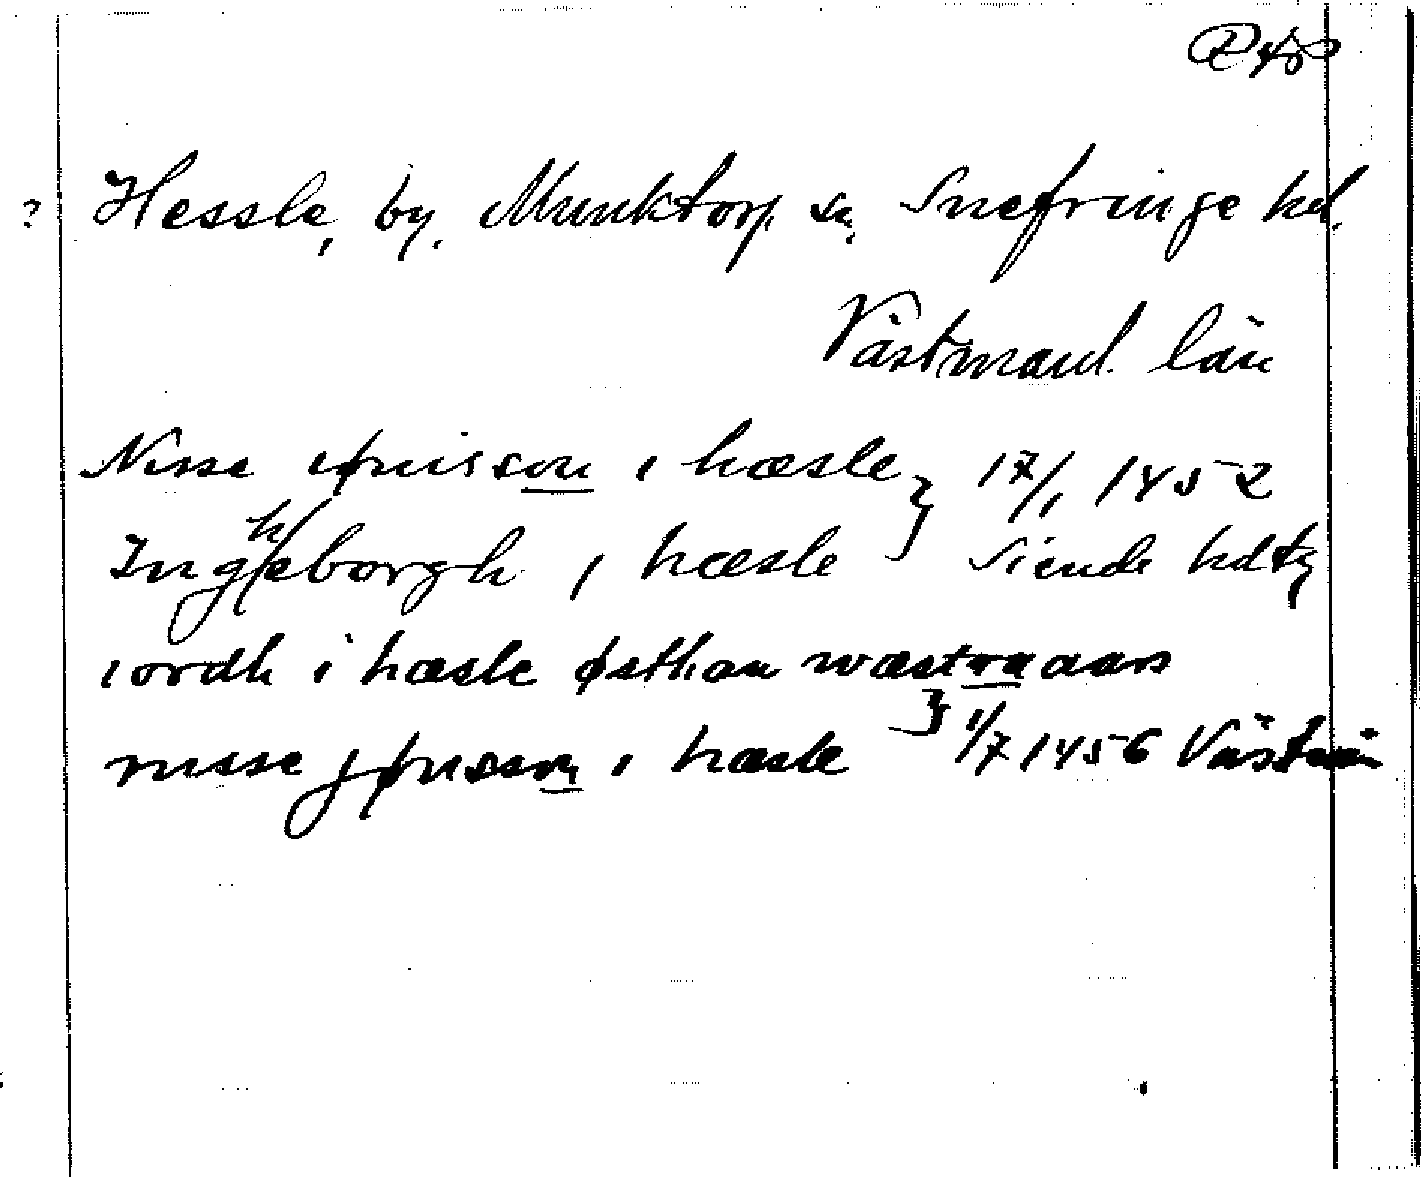 ? Hessle, by, Munktorp sn, Snefringe hd.
Västmanl. län
Nisse iønisson i hæsle } 17/1 1452
Ingheborgh i hæsle Siende hdtg
iordh i hæsle østhan wæstraaars
nisse jønsson i hæsle } 1/7 1456 Västerås